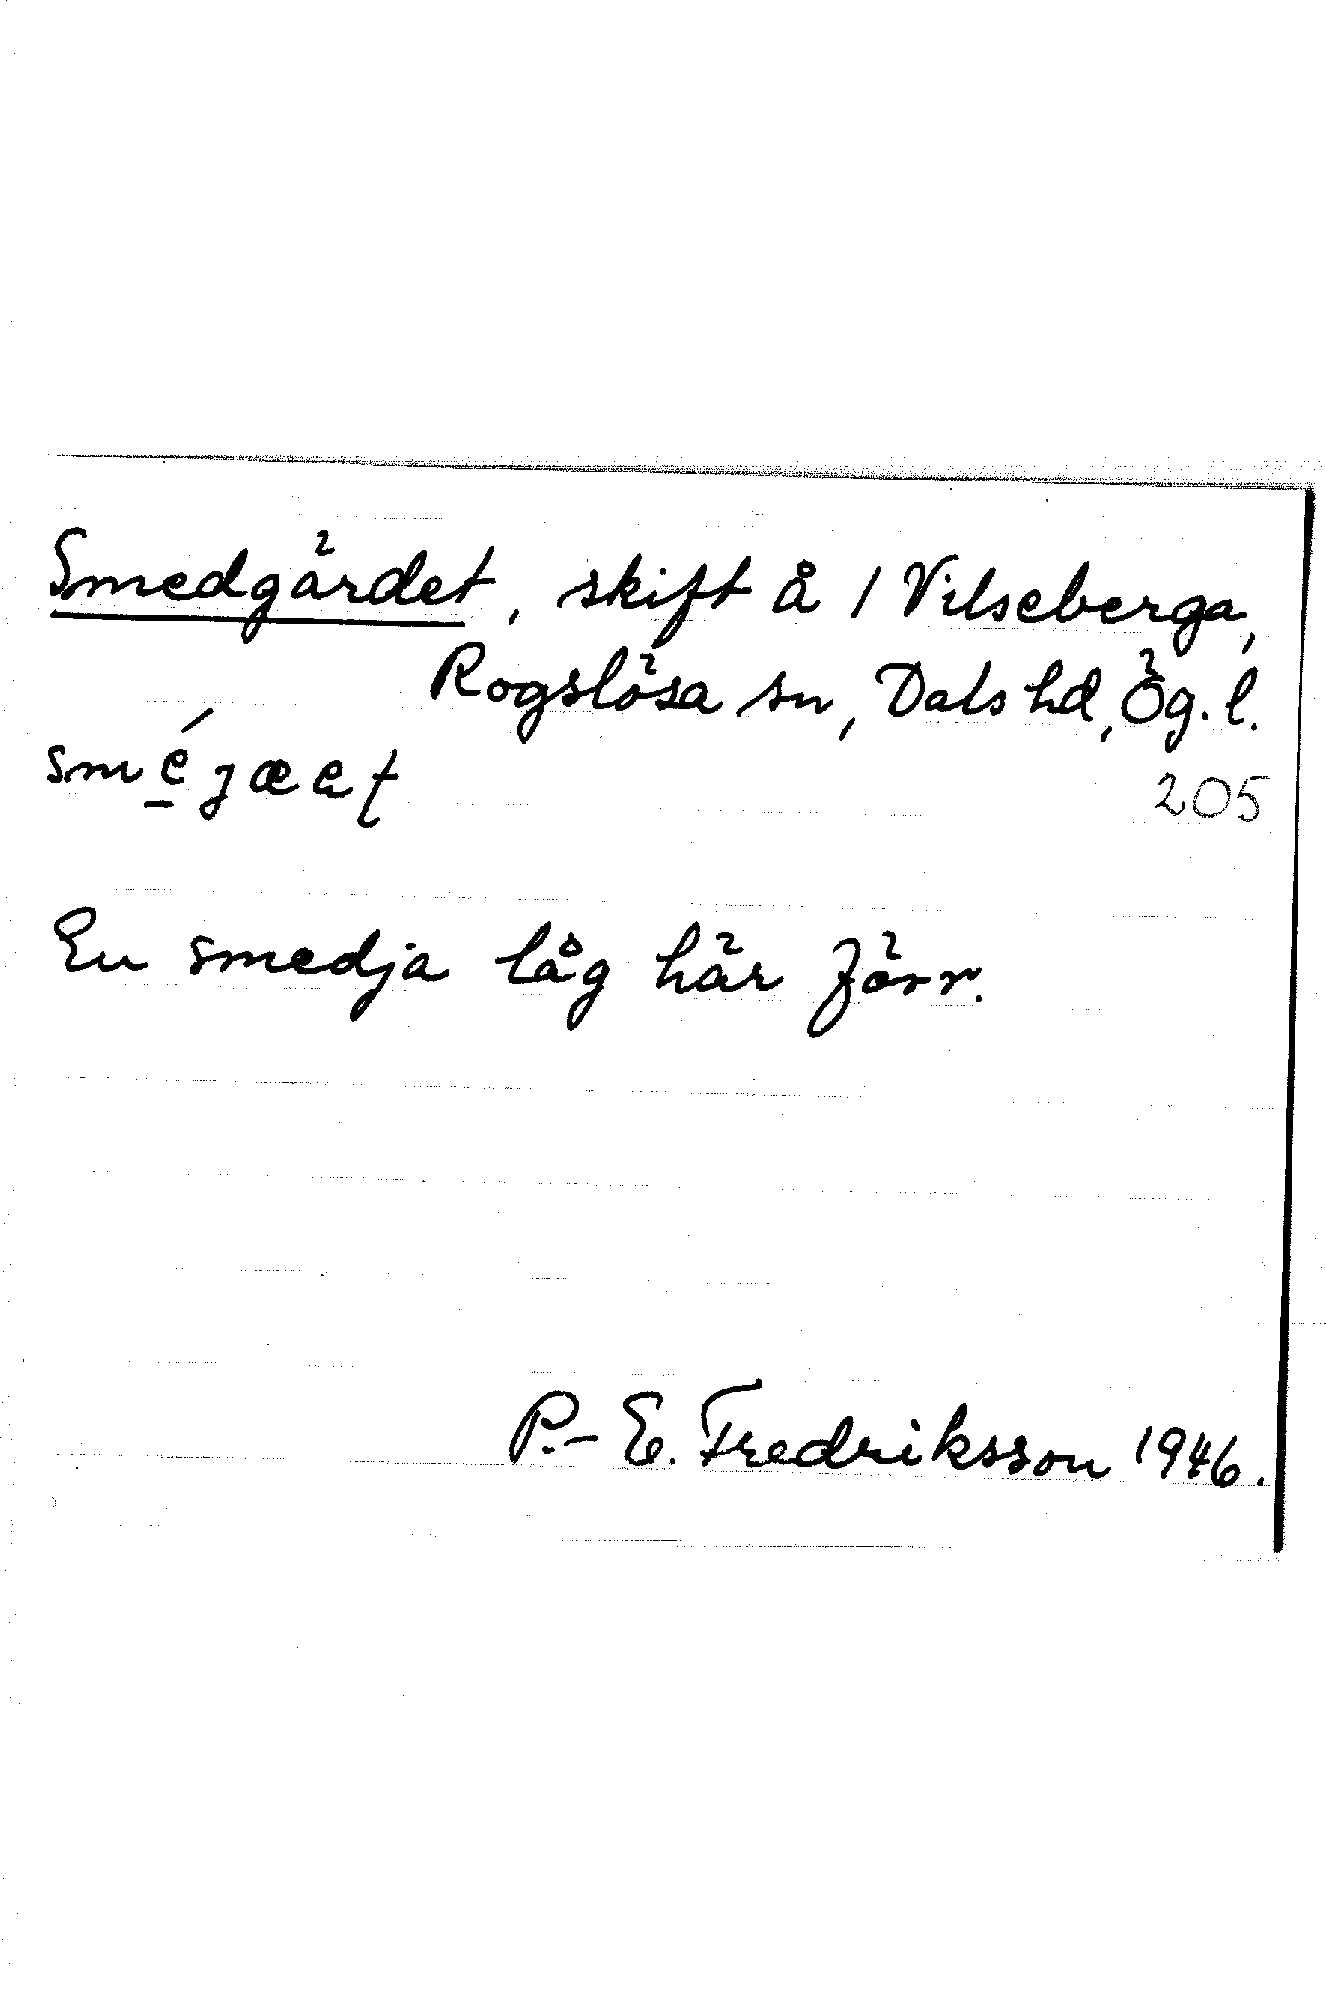 Smedgärdet, skift å 1 Vilseberga,
Rogslösa sn, Dals hd, Ög. l.
205
En smedja låg här förr.
P.-E. Fredriksson 1946.